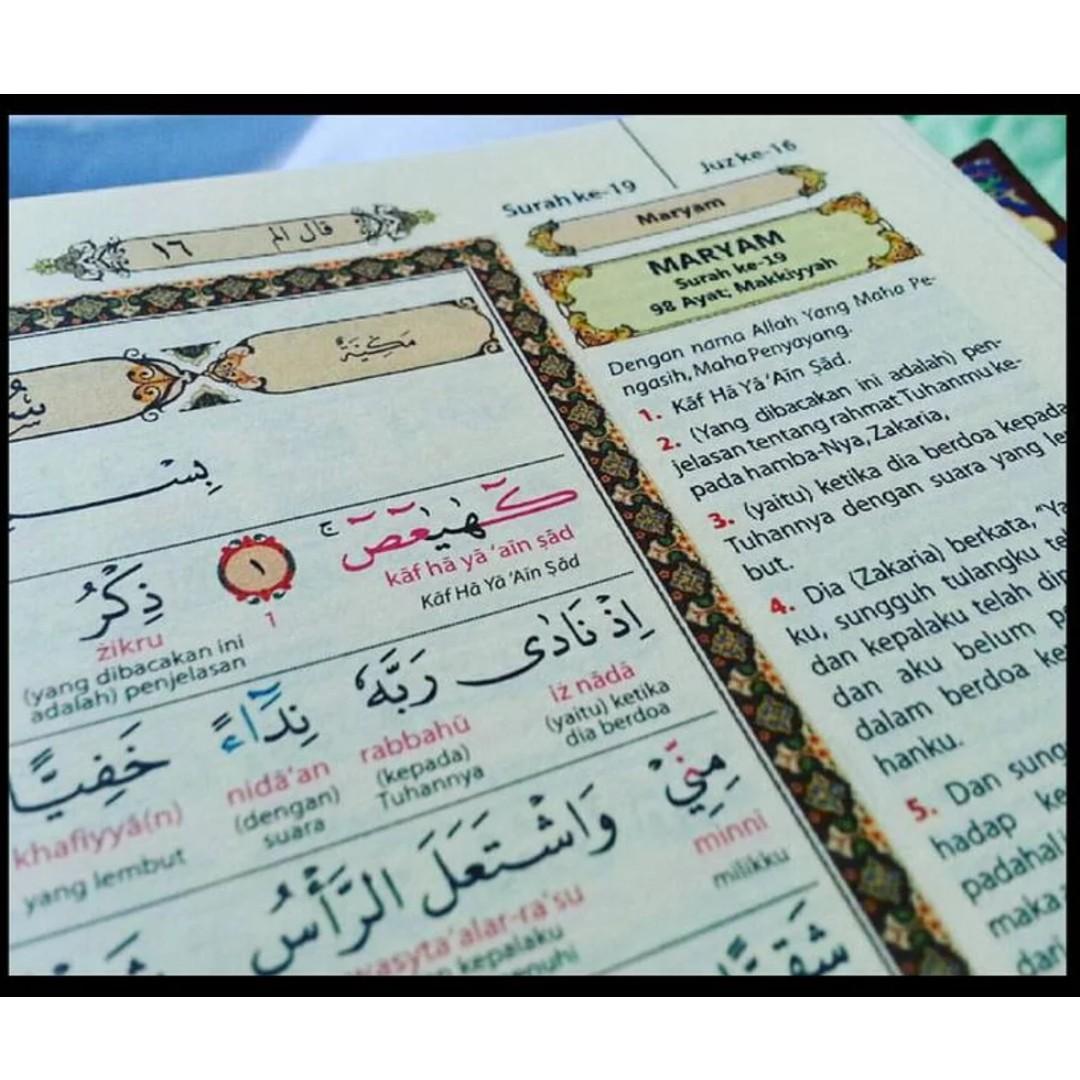 Surah ke-19
Juz ke-16
Maryam
MARYAM
Surah ke-19
98 Ayat; Makkiyyah
Dengan nama Allah Yang Maha Pe-
ngasih, Maha Penyayang.
1. Kāf Hā Yā 'Aīn Ṣād.
2. (Yang dibacakan ini adalah) pen-
jelasan tentang rahmat Tuhanmu ke-
pada hamba-Nya, Zakaria,
3. (yaitu) ketika dia berdoa kepada
Tuhannya dengan suara yang
but.
4. Dia (Zakaria) berkata, "Ya
ku, sungguh tulangku
dan kepalaku telah
dan aku belum
dalam berdoa
hanku.
5. Dan
hadap
padahal
maka
dari
قال الم ١٦
مَكِّيَّةٌ
بِسْـ
كۤهٰيٰعۤصۤ ۚ ١ ذِكْرُ
kāf hā yā 'aīn ṣād 1 żikru
Kāf Hā Yā 'Aīn Ṣād (yang dibacakan ini
adalah) penjelasan
اِذْ نَادٰى رَبَّهٗ نِدَاۤءً خَفِيًّا
iż nādā rabbahū nidā'an khafiyyā(n)
(yaitu) ketika (kepada) (dengan) yang lembut
dia berdoa Tuhannya suara
مِنِّيْ وَاشْتَعَلَ الرَّأْسُ
minnī wasyta'alar-ra'su
milikku kepalaku